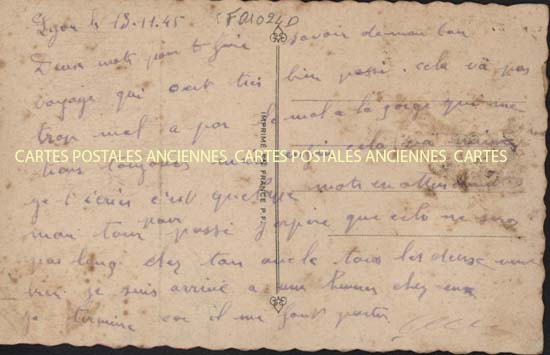 Lyon le 13.11.45
FO1024D
Deux mots pour te faire savoir de mon bon
voyage qui c'est très bien passé. cela va pas
trop mal a par le mal a la gorge qui me
tiens toujours cela
CARTES POSTALES ANCIENNES CARTES POSTALES ANCIENNES CARTES
IMPRIMÉ EN FRANCE P.F.
je t'écris c'est quelque mots en attendant
mon tour pour passé j'espère que cela ne sera
pas long. chez ton oncle tous les deux vont
bien je suis arrivé a une heures chez eux
je termine car il me faut partir